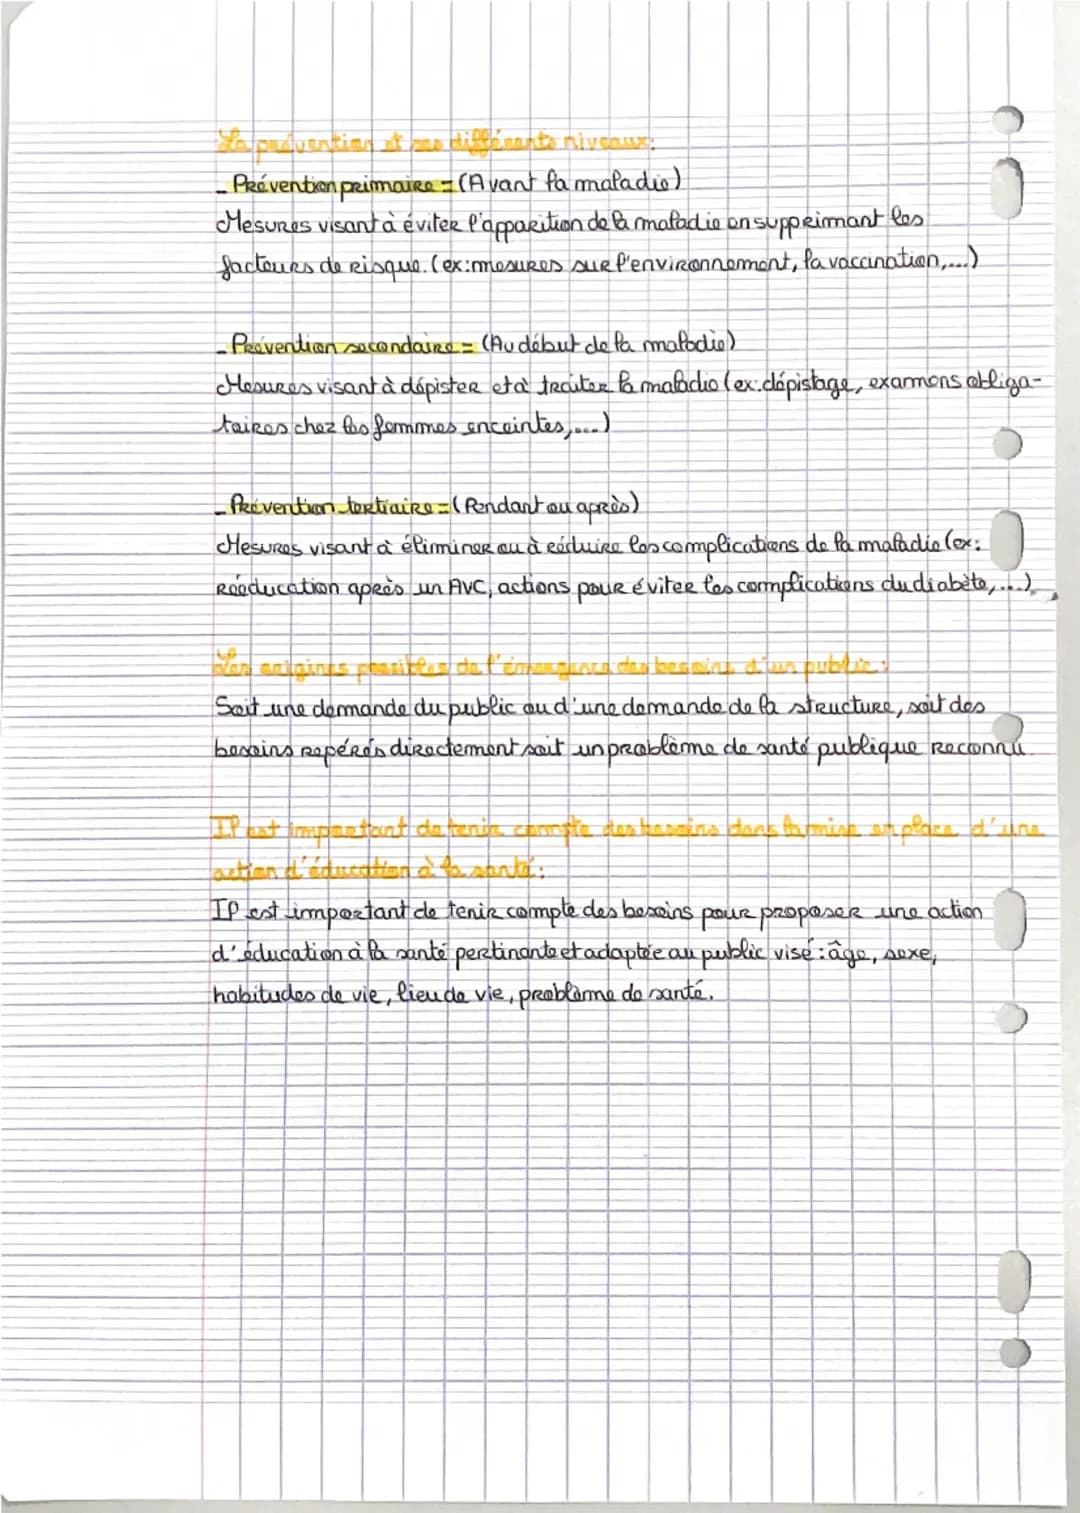 La prévention et ses différents niveaux:
- Prévention primaire = (Avant la maladie)
Mesures visant à éviter l'apparition de la maladie en supprimant les
facteurs de risque. (ex: mesures sur l'environnement, la vaccination,...)
- Prévention secondaire = (Au début de la maladie)
Mesures visant à dépister et à traiter la maladie (ex: dépistage, examens obliga-
toires chez les femmes enceintes,...)
- Prévention tertiaire = (Pendant ou après)
Mesures visant à éliminer ou à réduire les complications de la maladie (ex:
Rééducation après un AVC, actions pour éviter les complications du diabète,...)
Les origines possibles de l'émergence des besoins d'un public:
Soit une demande du public ou d'une demande de la structure, soit des
besoins repérés directement soit un problème de santé publique reconnu.
Il est important de tenir compte des besoins dans la mise en place d'une
action d'éducation à la santé:
Il est important de tenir compte des besoins pour proposer une action
d'éducation à la santé pertinente et adaptée au public visé: âge, sexe,
habitudes de vie, lieu de vie, problème de santé.